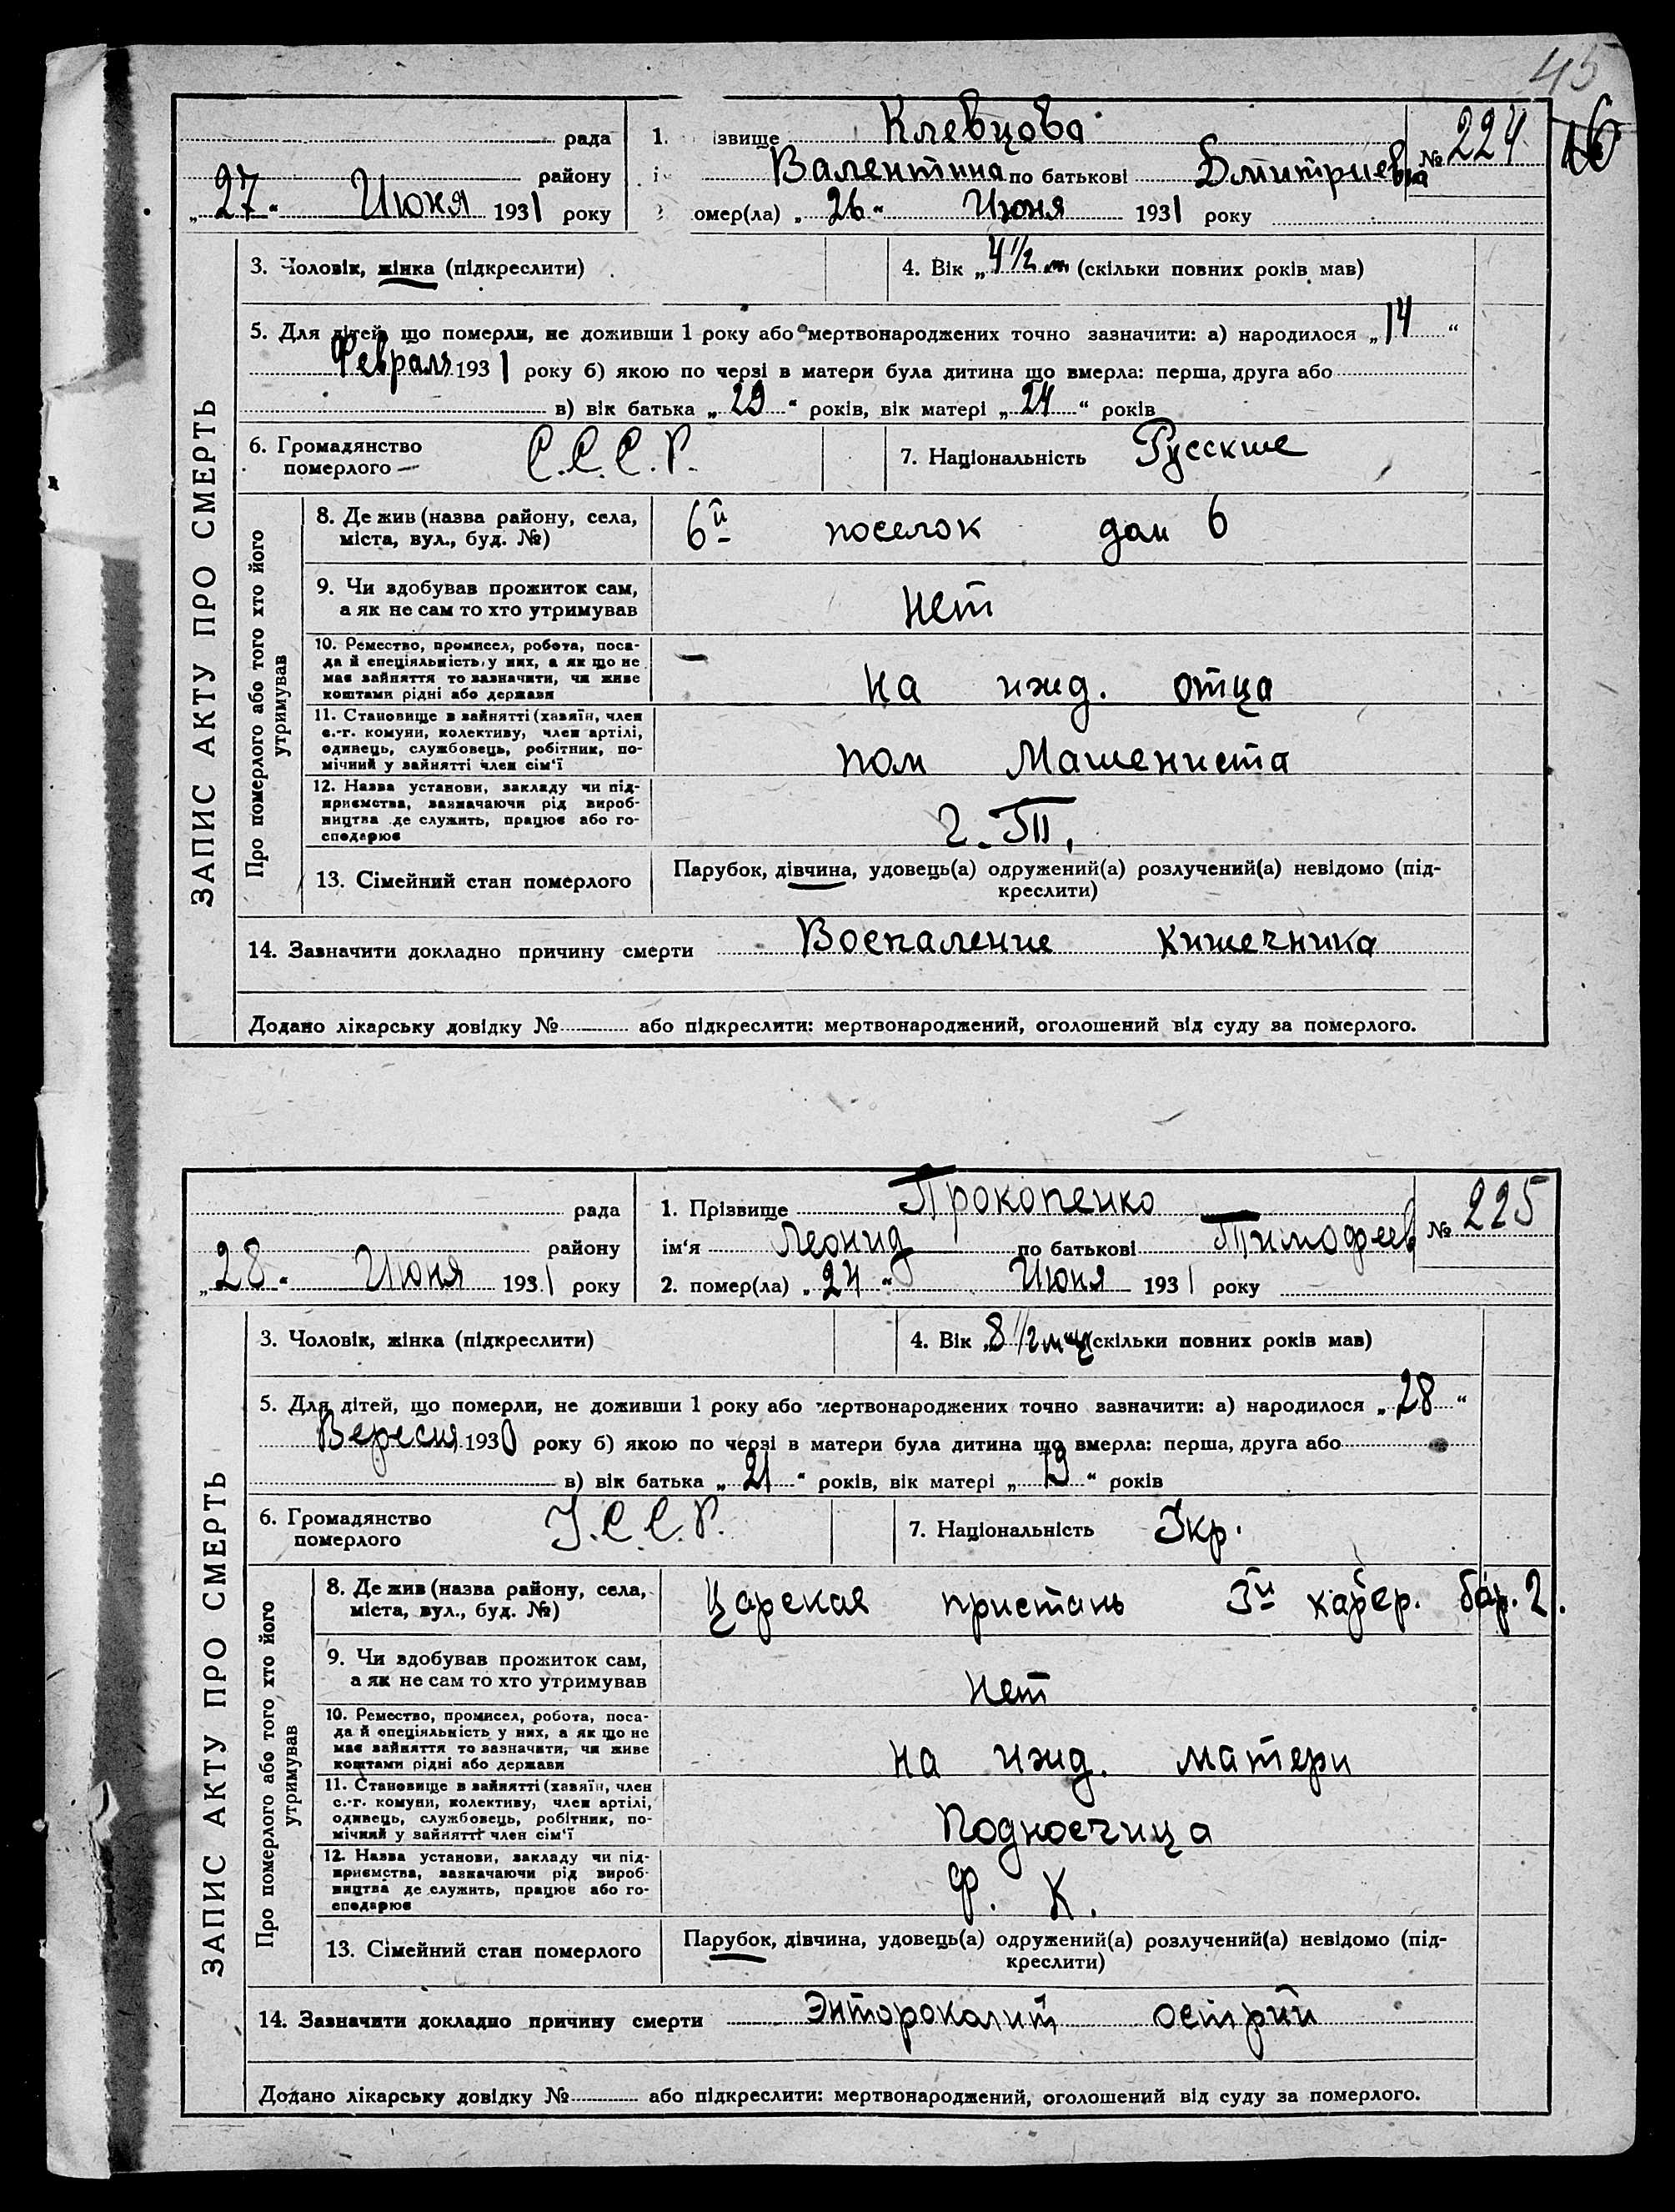 45
16
рада
району
„27“ Июня 1931 року
1. ізвище Клевцова
Валентина по батькові Дмитриевна
№ 224
омер(ла) „26“ Июня 1931 року
ЗАПИС АКТУ ПРО СМЕРТЬ
3. Чоловік, жінка (підкреслити)
4. Вік „4 1/2 м (скільки повних років мав)
5. Для дітей, що померли, не доживши 1 року або мертвонароджених точно зазначити: а) народилося „14“
Февраля 1931 року б) якою по черзі в матери була дитина що вмерла: перша, друга або
в) вік батька „29“ років, вік матері „24“ років
6. Громадянство померлого С.С.С.Р.
7. Національність Русские
Про померлого або того хто його утримував
8. Де жив (назва району, села, міста, вул., буд. №)
6й поселок дом 6
9. Чи здобував прожиток сам, а як не сам то хто утримував
нет
10. Ремество, промисел, робота, посада й спеціяльність у них, а як що не має зайняття то зазначити, чи живе коштами рідні або держави
на ижд. отца
11. Становище в зайнятті (хазяїн, член с.-г. комуни, колективу, член артілі, одинець, службовець, робітник, помічний у зайнятті член сім'ї
пом Машениста
12. Назва установи, закладу чи підприємства, зазначаючи рід виробництва де служить, працює або господарює
13. Сімейний стан померлого
Парубок, дівчина, удовець(а) одружений(а) розлучений(а) невідомо (підкреслити)
14. Зазначити докладно причину смерти Воспаление кишечника
Додано лікарську довідку № або підкреслити: мертвонароджений, оголошений від суду за померлого.
рада
району
„28“ Июня 1931 року
1. Прізвище Прокопенко
ім'я Леонид по батькові Тимофеев
№ 225
2. помер(ла) „24“ Июня 1931 року
ЗАПИС АКТУ ПРО СМЕРТЬ
3. Чоловік, жінка (підкреслити)
4. Вік „8 1/2 мц (скільки повних років мав)
5. Для дітей, що померли, не доживши 1 року або мертвонароджених точно зазначити: а) народилося „28“
Вересня 1930 року б) якою по черзі в матери була дитина що вмерла: перша, друга або
в) вік батька „21“ років, вік матері „19“ років
6. Громадянство померлого У.С.С.Р.
7. Національність Укр.
Про померлого або того хто його утримував
8. Де жив (назва району, села, міста, вул., буд. №)
Царская пристань 3й карьер. бар. 2.
9. Чи здобував прожиток сам, а як не сам то хто утримував
нет
10. Ремество, промисел, робота, посада й спеціяльність у них, а як що не має зайняття то зазначити, чи живе коштами рідні або держави
на ижд. матери
11. Становище в зайнятті (хазяїн, член с.-г. комуни, колективу, член артілі, одинець, службовець, робітник, помічний у зайнятті член сім'ї
Подносчица
12. Назва установи, закладу чи підприємства, зазначаючи рід виробництва де служить, працює або господарює
Ф. К.
13. Сімейний стан померлого
Парубок, дівчина, удовець(а) одружений(а) розлучений(а) невідомо (підкреслити)
14. Зазначити докладно причину смерти Энтороколит острий
Додано лікарську довідку № або підкреслити: мертвонароджений, оголошений від суду за померлого.